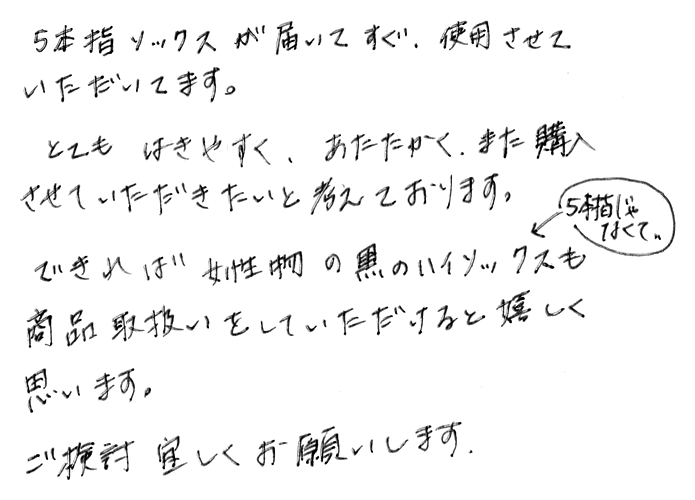 5本指ソックスが届いてすぐ、使用させて
いただいてます。
とても はきやすく、あたたかく、また購入
させていただきたいと考えております。
5本指じゃ
なくて。
できれば 女性物の黒のハイソックスも
商品取扱いをしていただけると嬉しく
思います。
ご検討 宜しくお願いします.